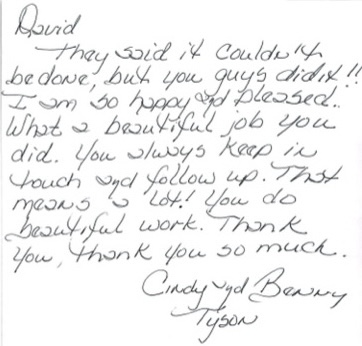 David
They said it couldn't
be done, but you guys did it!!
I am so happy and pleased..
What a beautiful job you
did. You always keep in
touch and follow up. That
means a lot! You do
beautiful work. Thank
you, thank you so much.
Cindy and Benny
Tyson